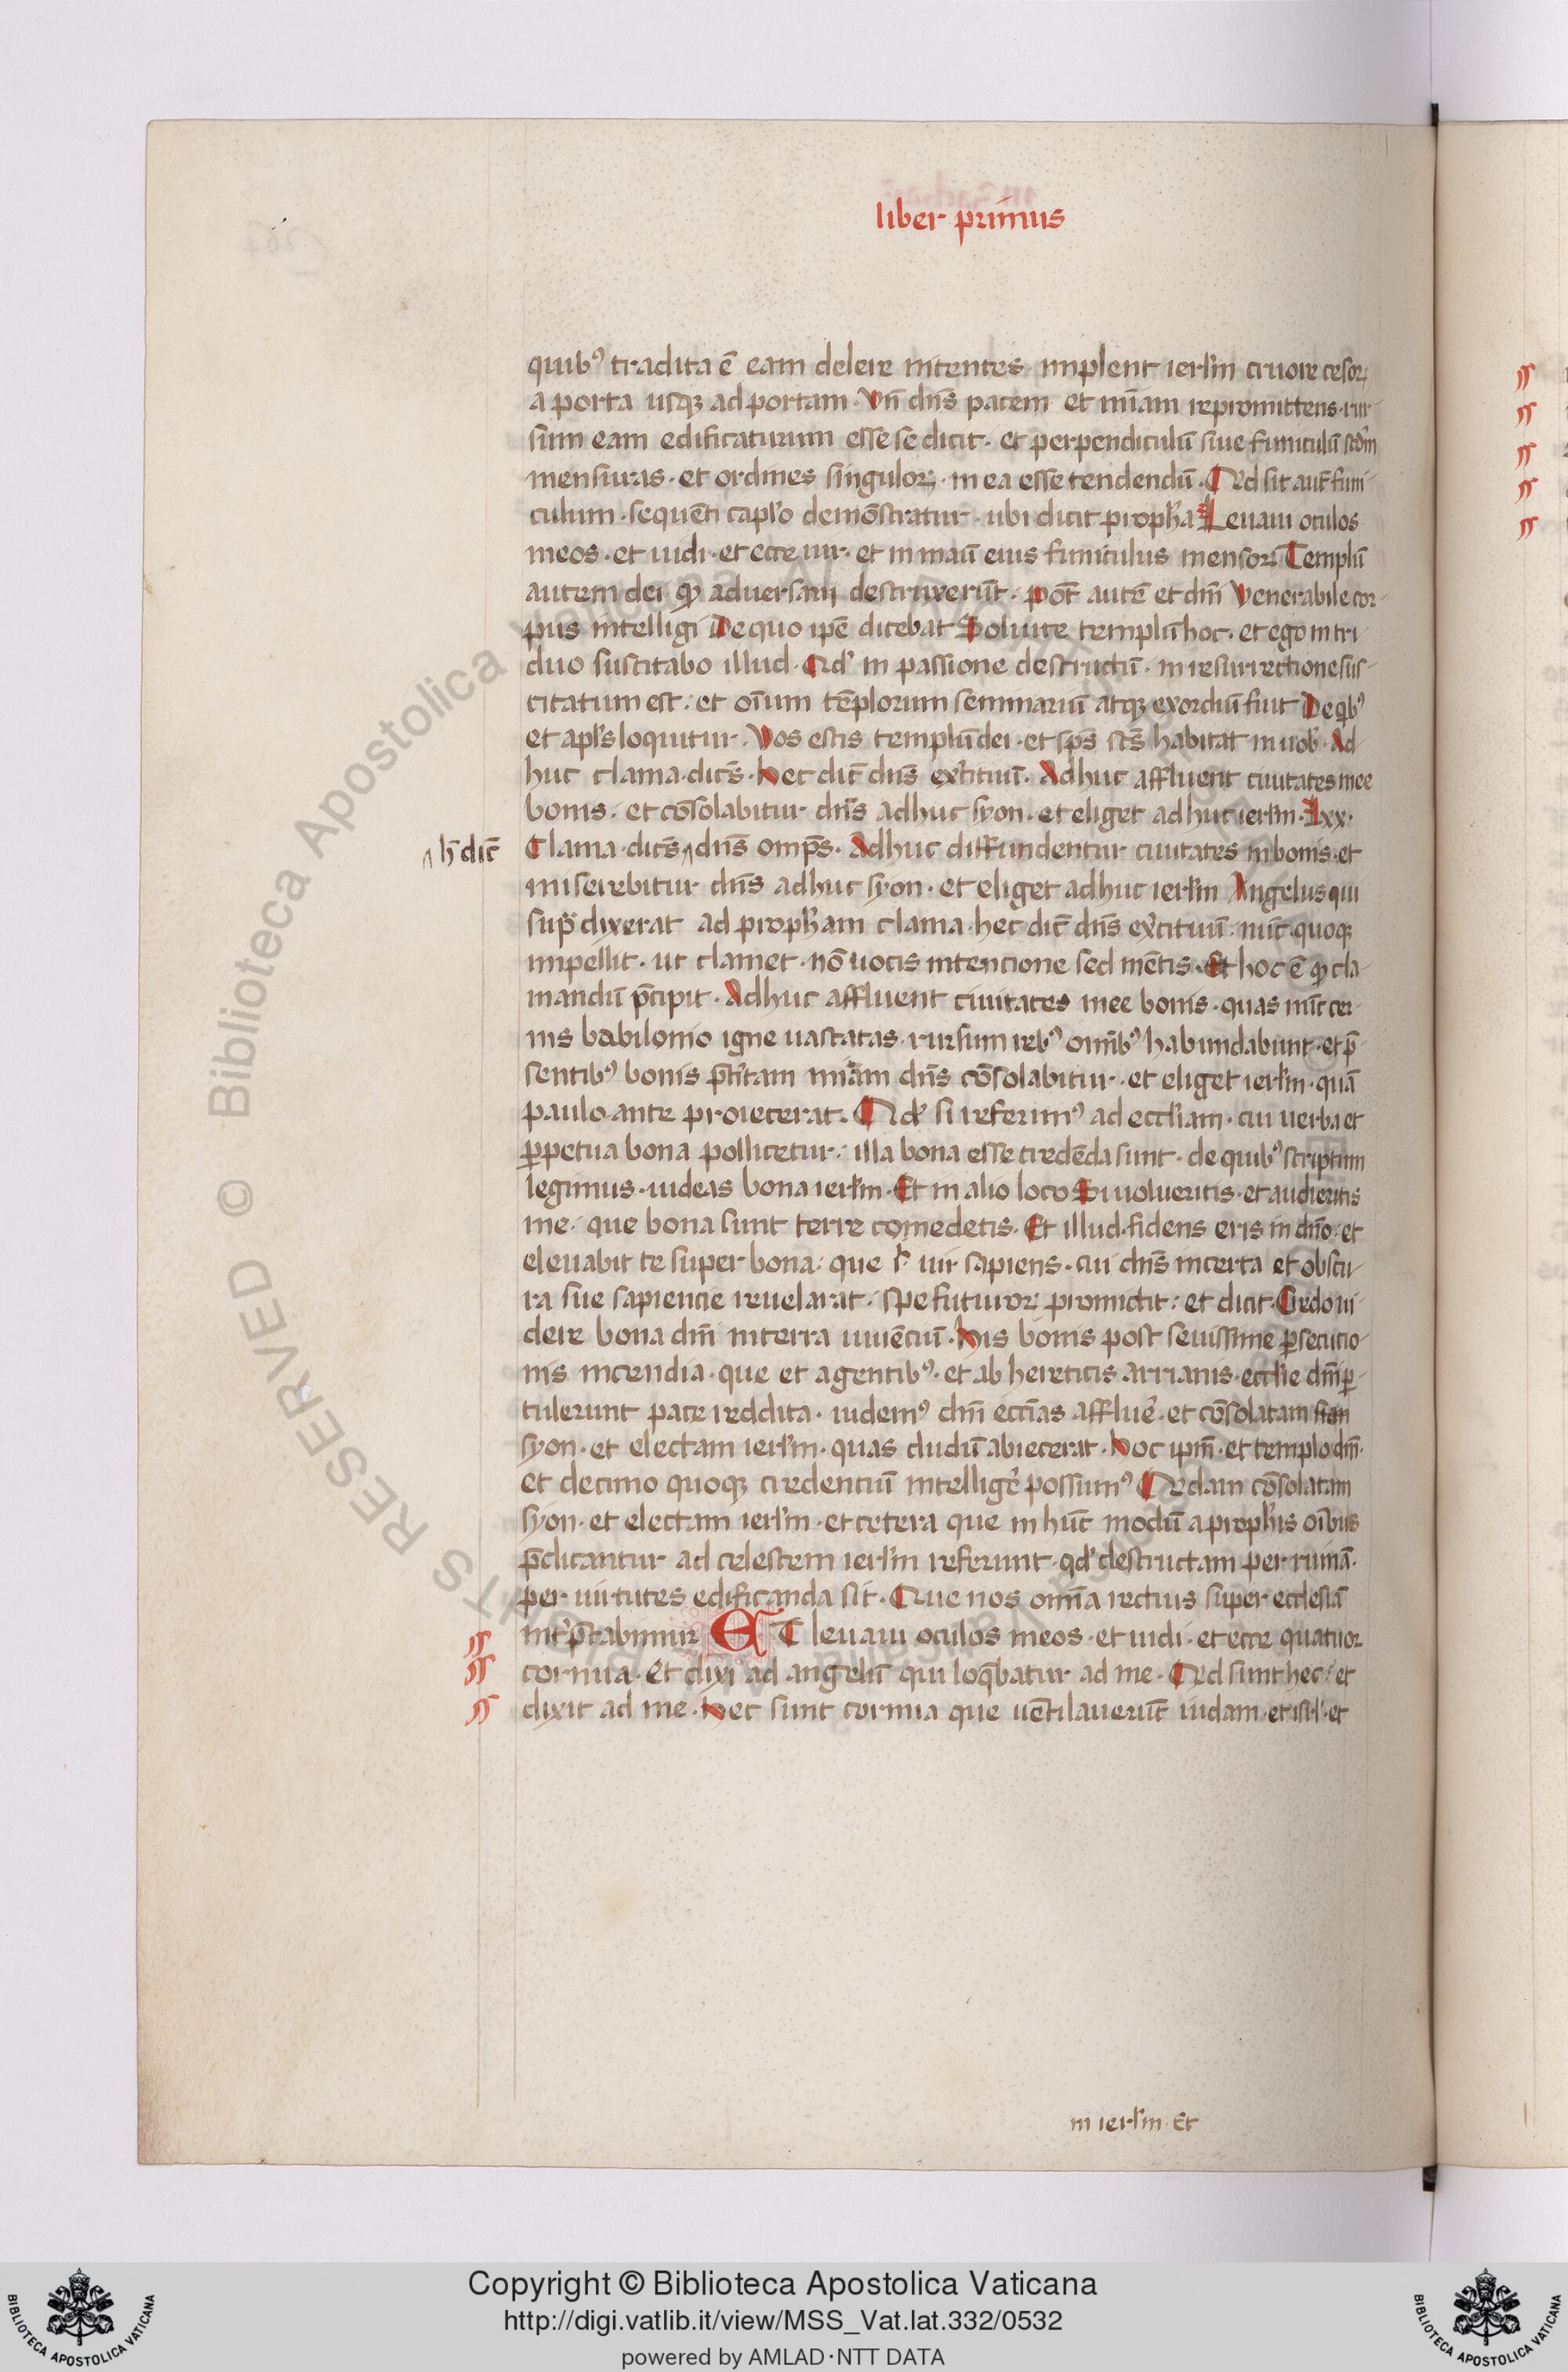 liber primus
quibꝰ tradita ē eam delere nitentes implent ierl̄m cruore cesoꝝ
a porta usqꝫ ad portam. Vn̄ dn̄s pacem et mīam repromittens. rur
sum eam edificaturum esse se dicit. et perpendiculū siue funiculū scd̄m
mensuras. et ordines singuloꝝ in ea esse tendendū. Qd sit aut̄ funi
culum. sequēti capl̄o demōstratur. ubi dicit proph̄a Leuaui oculos
meos. et uidi. et ecce uir. et in manū eius funiculus mensoꝝ Templū
autem dei qd aduersarii destruxerūt. pot̄ autē et dn̄i Venerabile cor
pus intelligi De quo ip̄e dicebat Soluite templū hoc. et ego in tri
duo suscitabo illud. Qd' in passione destructū. in resurrectione sus
citatum est. et oīum tēplorum seminariū atqꝫ exordiū fuit De qͥbꝰ
et apl̄s loquitur. Vos estis templū dei. et sp̄s sc̄s habitat in uob̄. Ad
huc clama. dicēs. hec dic̄ dn̄s exercituū. Adhuc affluent ciuitates mee
bonis. et cōsolabitur dn̄s adhuc syon. et eliget adhuc ierl̄m. Lxx.
Clama. dicēs dn̄s omp̄s. Adhuc diffundentur ciuitates in bonis. et
h̄ dic̄
miserebitur dn̄s adhuc syon. et eliget adhuc ierl̄m Angelus qui
supͣ dixerat ad proph̄am clama. hec dic̄ dn̄s exercituū. nūc quoqꝫ
impellit. ut clamet. nō uocis intencione sed mētis. Et hoc ē qd cla
mandū p̄cipit. Adhuc affluent ciuitates mee bonis. quas nūc cer
nis babilonio igne uastatas. rursum rebꝰ omībꝰ habundabunt. et p̄
sentibꝰ bonis p̄t̄itam miām dn̄s cōsolabitur. et eliget ierl̄m. quā
paulo ante proiecerat. Qd' si referimꝰ ad eccl̄iam. cui uerba et
ꝑpetua bona pollicetur. illa bona esse credēda sunt. de quibꝰ scriptum
legimus. uideas bona ierl̄m. Et in alio loco Si uolueritis. et audieritis
me. que bona sunt terre comedetis. Et illud. fidens eris in dn̄o. et
eleuabit te super bona. que uir sapiens. cui dn̄s incerta et obscu
ra sue sapiencie reuelarat. spe futuroꝝ promictit. et dicit. Credo ui
dere bona dn̄i in terra uiuēciū. his bonis post seuissime ꝑsecucio
nis incendia. que et a gentibꝰ. et ab hereticis arrianis. eccl̄ie dn̄i ꝑ
tulerunt pace reddita. uidemꝰ dn̄i eccl̄ias affluē. et cōsolatam
syon. et electam ierl̄m. quas dudū abiecerat. hoc ip̄m. et templo dn̄i.
et decimo quoqꝫ credenciū intelligē possumꝰ Qdam cōsolatam
syon. et electam ierl̄m. et cetera que in hūc modū a proph̄is oībus
p̄dicantur ad celestem ierl̄m referunt. qd' destructam per ruinā.
per uirtutes edificanda sit. Que nos omīa rectius super ecclesiā
int̄p̄tabimur ET leuaui oculos meos. et uidi. et ecce quatuor
cornua. Et dixi ad angelū qui loq̄batur ad me. Qd sunt hec. et
dixit ad me. hec sunt cornua que uētilauerūt iudam. et isrl'. et
in ierl̄m. Et
© Biblioteca Apostolica Vaticana
RIGHTS RESERVED
Copyright © Biblioteca Apostolica Vaticana
http://digi.vatlib.it/view/MSS_Vat.lat.332/0532
powered by AMLAD·NTT DATA
BIBLIOTECA APOSTOLICA VATICANA
BIBLIOTECA APOSTOLICA VATICANA